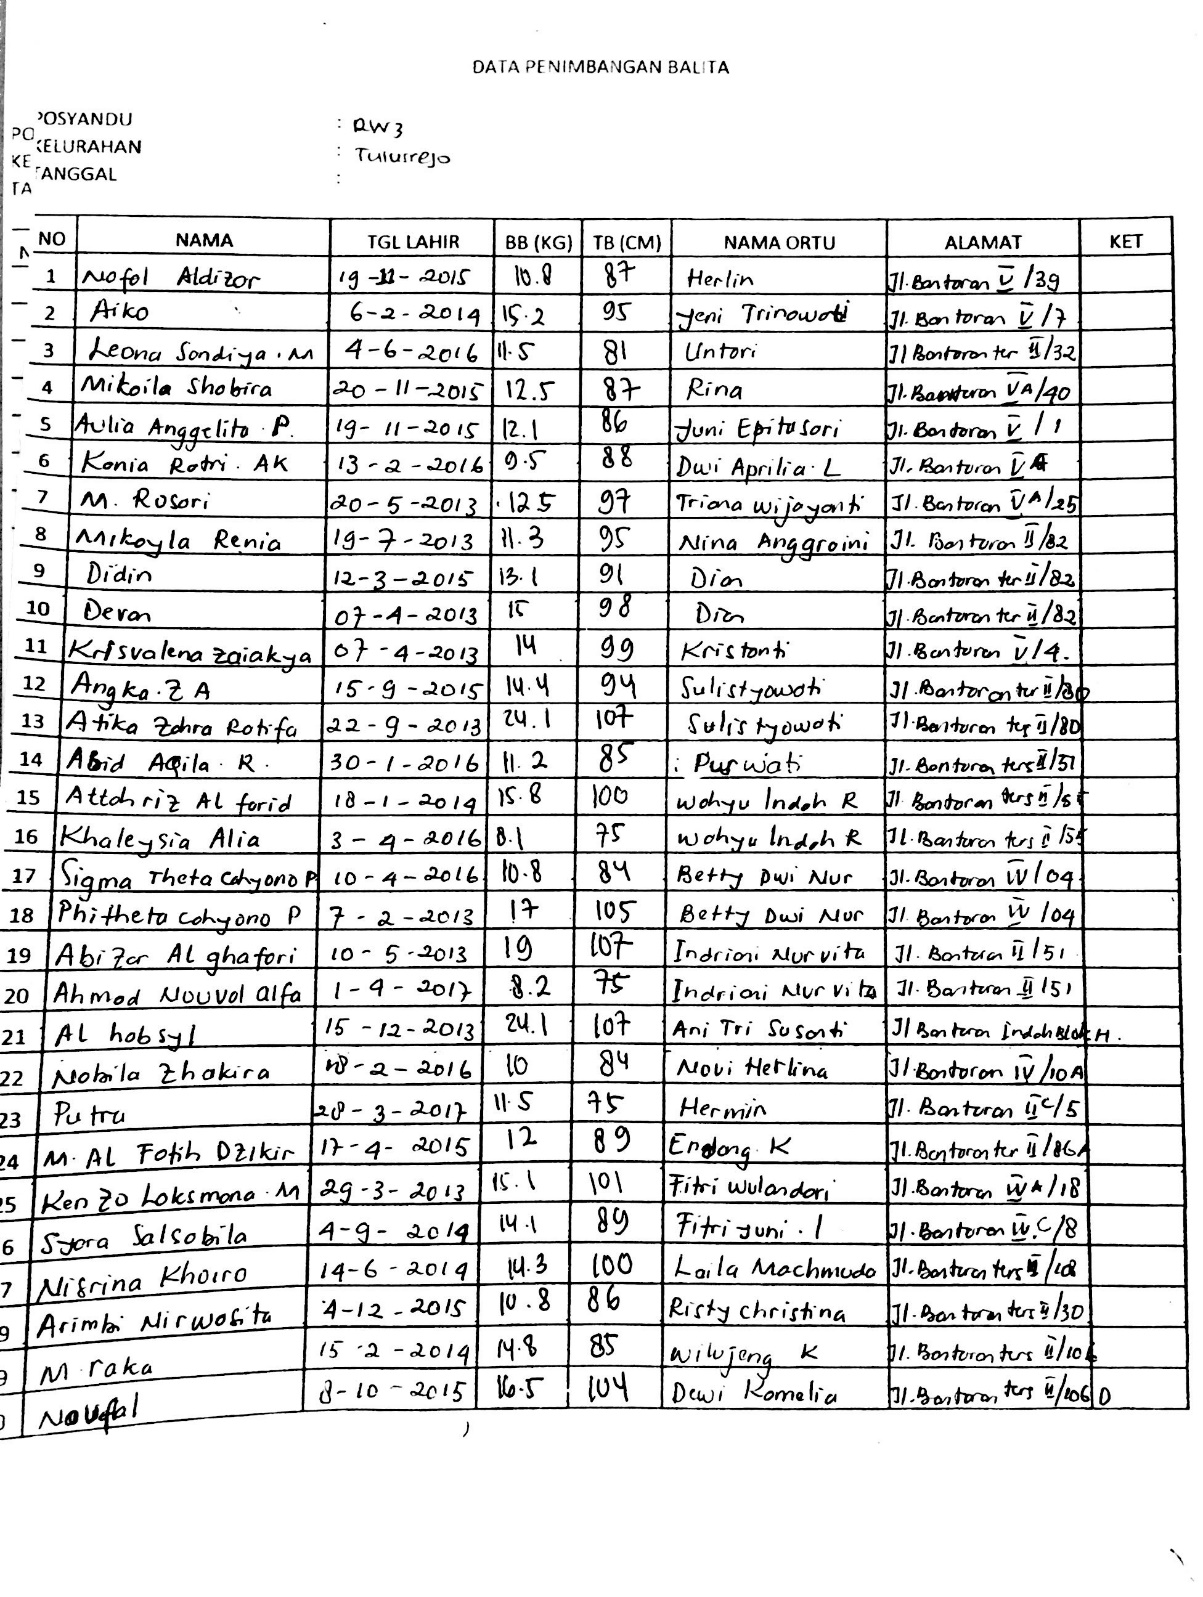 DATA PENIMBANGAN BALITA
POSYANDU : RW3
KELURAHAN : Tulusrejo
TANGGAL :
PO
KE
TA
NO NAMA TGL LAHIR BB (KG) TB (CM) NAMA ORTU ALAMAT KET
1 Nofol Aldizar 19-11-2015 10.8 87 Herlin Jl. Bantaran V/39
2 Aiko 6-2-2014 15.2 95 Yeni Trinowati Jl. Bantaran V/7
3 Leona Sandiya.M 4-6-2016 11.5 81 Untari Jl Bantaran ter II/32
4 Mikaila Shabira 20-11-2015 12.5 87 Rina Jl. Bantaran VA/40
5 Aulia Anggelita.P. 19-11-2015 12.1 86 Juni Epitasari Jl. Bantaran V/1
6 Kania Ratri. AK 13-2-2016 9.5 88 Dwi Aprilia.L Jl. Bantaran V
7 M. Rosari 20-5-2013 12.5 97 Triana Wijayanti Jl. Bantaran VA/25
8 Mikayla Renia 19-7-2013 11.3 95 Nina Anggraini Jl. Bantaran II/82
9 Didin 12-3-2015 13.1 91 Dian Jl. Bantaran ter II/82
10 Devan 07-4-2013 15 98 Dian Jl. Bantaran ter II/82
11 Krisvalena Zaiakya 07-4-2013 14 99 Kristanti Jl. Bantaran V/4.
12 Angka.Z A 15-9-2015 14.4 94 Sulistyowati Jl. Bantaran ter II/80
13 Atika Zahra Ratifa 22-9-2013 24.1 107 Sulistyowati Jl. Bantaran ters II/80
14 Abid Aqila.R. 30-1-2016 11.2 85 Purwati Jl. Bantaran ters II/51
15 Attahriz Al farid 18-1-2014 15.8 100 Wahyu Indah R Jl Bantaran ters II/55
16 Khaleysia Alia 3-4-2016 8.1 75 Wahyu Indah R Jl. Bantaran ters II/55
17 Sigma Theta Cahyono P 10-4-2016 10.8 84 Betty Dwi Nur Jl. Bantaran IV/04
18 Phitheta Cahyono P 7-2-2013 17 105 Betty Dwi Nur Jl. Bantaran IV/04
19 Abizar Al ghafari 10-5-2013 19 107 Indriani Nur vita Jl. Bantaran II/51
20 Ahmad Nouval alfa 1-9-2017 8.2 75 Indriani Nur vita Jl. Bantaran II/51
21 Al habsyl 15-12-2013 24.1 107 Ani Tri Susanti Jl Bantaran Indah Blok H.
22 Nabila Zhakira 18-2-2016 10 84 Novi Herlina Jl. Bantaran IV/10A
23 Putra 28-3-2017 11.5 75 Hermin Jl. Bantaran IIC/5
24 M. AL Fatih Dzikir 17-4-2015 12 89 Endang K Jl. Bantaran ter II/86A
5 Kenzo Laksmana.M 29-3-2013 15.1 101 Fitri Wulandari Jl. Bantaran IVA/18
6 Syara Salsabila 4-9-2014 14.1 89 Fitri Yuni.I Jl. Bantaran IV.C/8
7 Nisrina Khoiro 14-6-2014 14.3 100 Laila Machmuda Jl. Bantaran ters II/108
Arimbi Nirwasita 4-12-2015 10.8 86 Risty Christina Jl. Bantaran ters II/30
M raka 15-2-2014 14.8 85 Wilujeng K Jl. Bantaran ters II/106
Noufal 8-10-2015 16.5 104 Dewi Kamelia Jl. Bantaran ters II/106 D